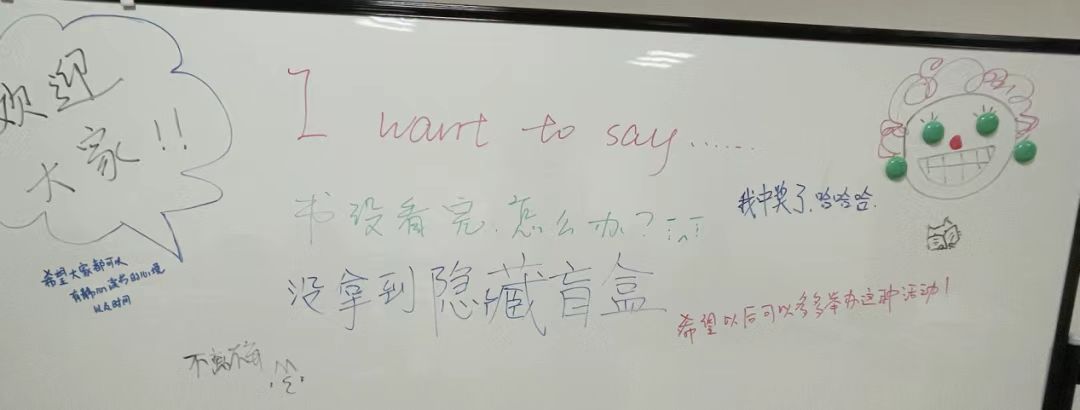 欢迎
大家!!
I want to say......
书没看完.怎么办?
我中奖了.哈哈哈.
没拿到隐藏盲盒
希望大家都可以
有静心读书的心境
以及时间
希望以后可以多多举办这种活动!